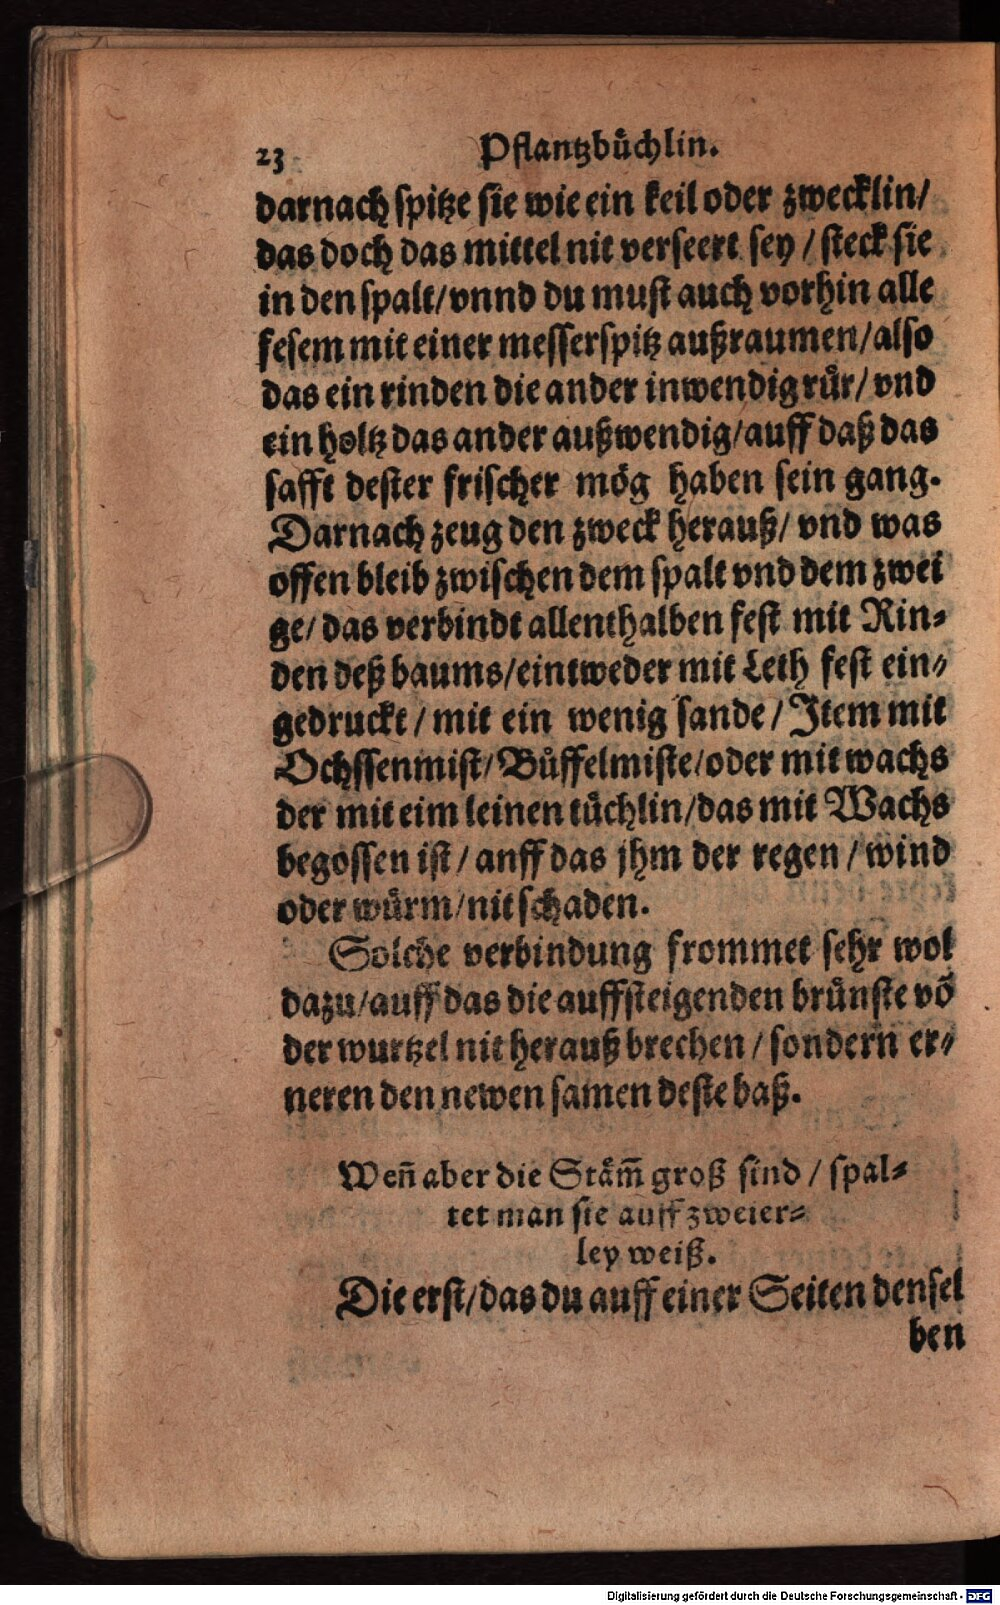 23 Pflantzbuͤchlin.
darnach spitze sie wie ein keil oder zwecklin/
das doch das mittel nit verseert sey / steck sie
in den spalt/vnnd du must auch vorhin alle
fesem mit einer messerspitz außraumen/also
das ein rinden die ander inwendig ruͤr/ vnd
ein holtz das ander außwendig/auff daß das
safft dester frischer moͤg haben sein gang.
Darnach zeug den zweck herauß/ vnd was
offen bleib zwischen dem spalt vnd dem zwei
ge/ das verbindt allenthalben fest mit Rin⸗
den deß baums/eintweder mit Leth fest ein⸗
gedruckt / mit ein wenig sande / Item mit
Ochssenmist/ Buͤffelmiste/oder mit wachs
der mit eim leinen tuͤchlin/das mit Wachs
begossen ist / anff das jhm der regen / wind
oder wuͤrm/nit schaden.
Solche verbindung frommet sehr wol
dazu/auff das die auffsteigenden bruͤnste võ
der wurtzel nit herauß brechen / sondern er⸗
neren den newen samen deste baß.
Weñ aber die Staͤm̃ groß sind / spal⸗
tet man sie auff zweier⸗
ley weiß.
Die erst/das du auff einer Seiten densel
ben
Digitalisierung gefördert durch die Deutsche Forschungsgemeinschaft - DFG